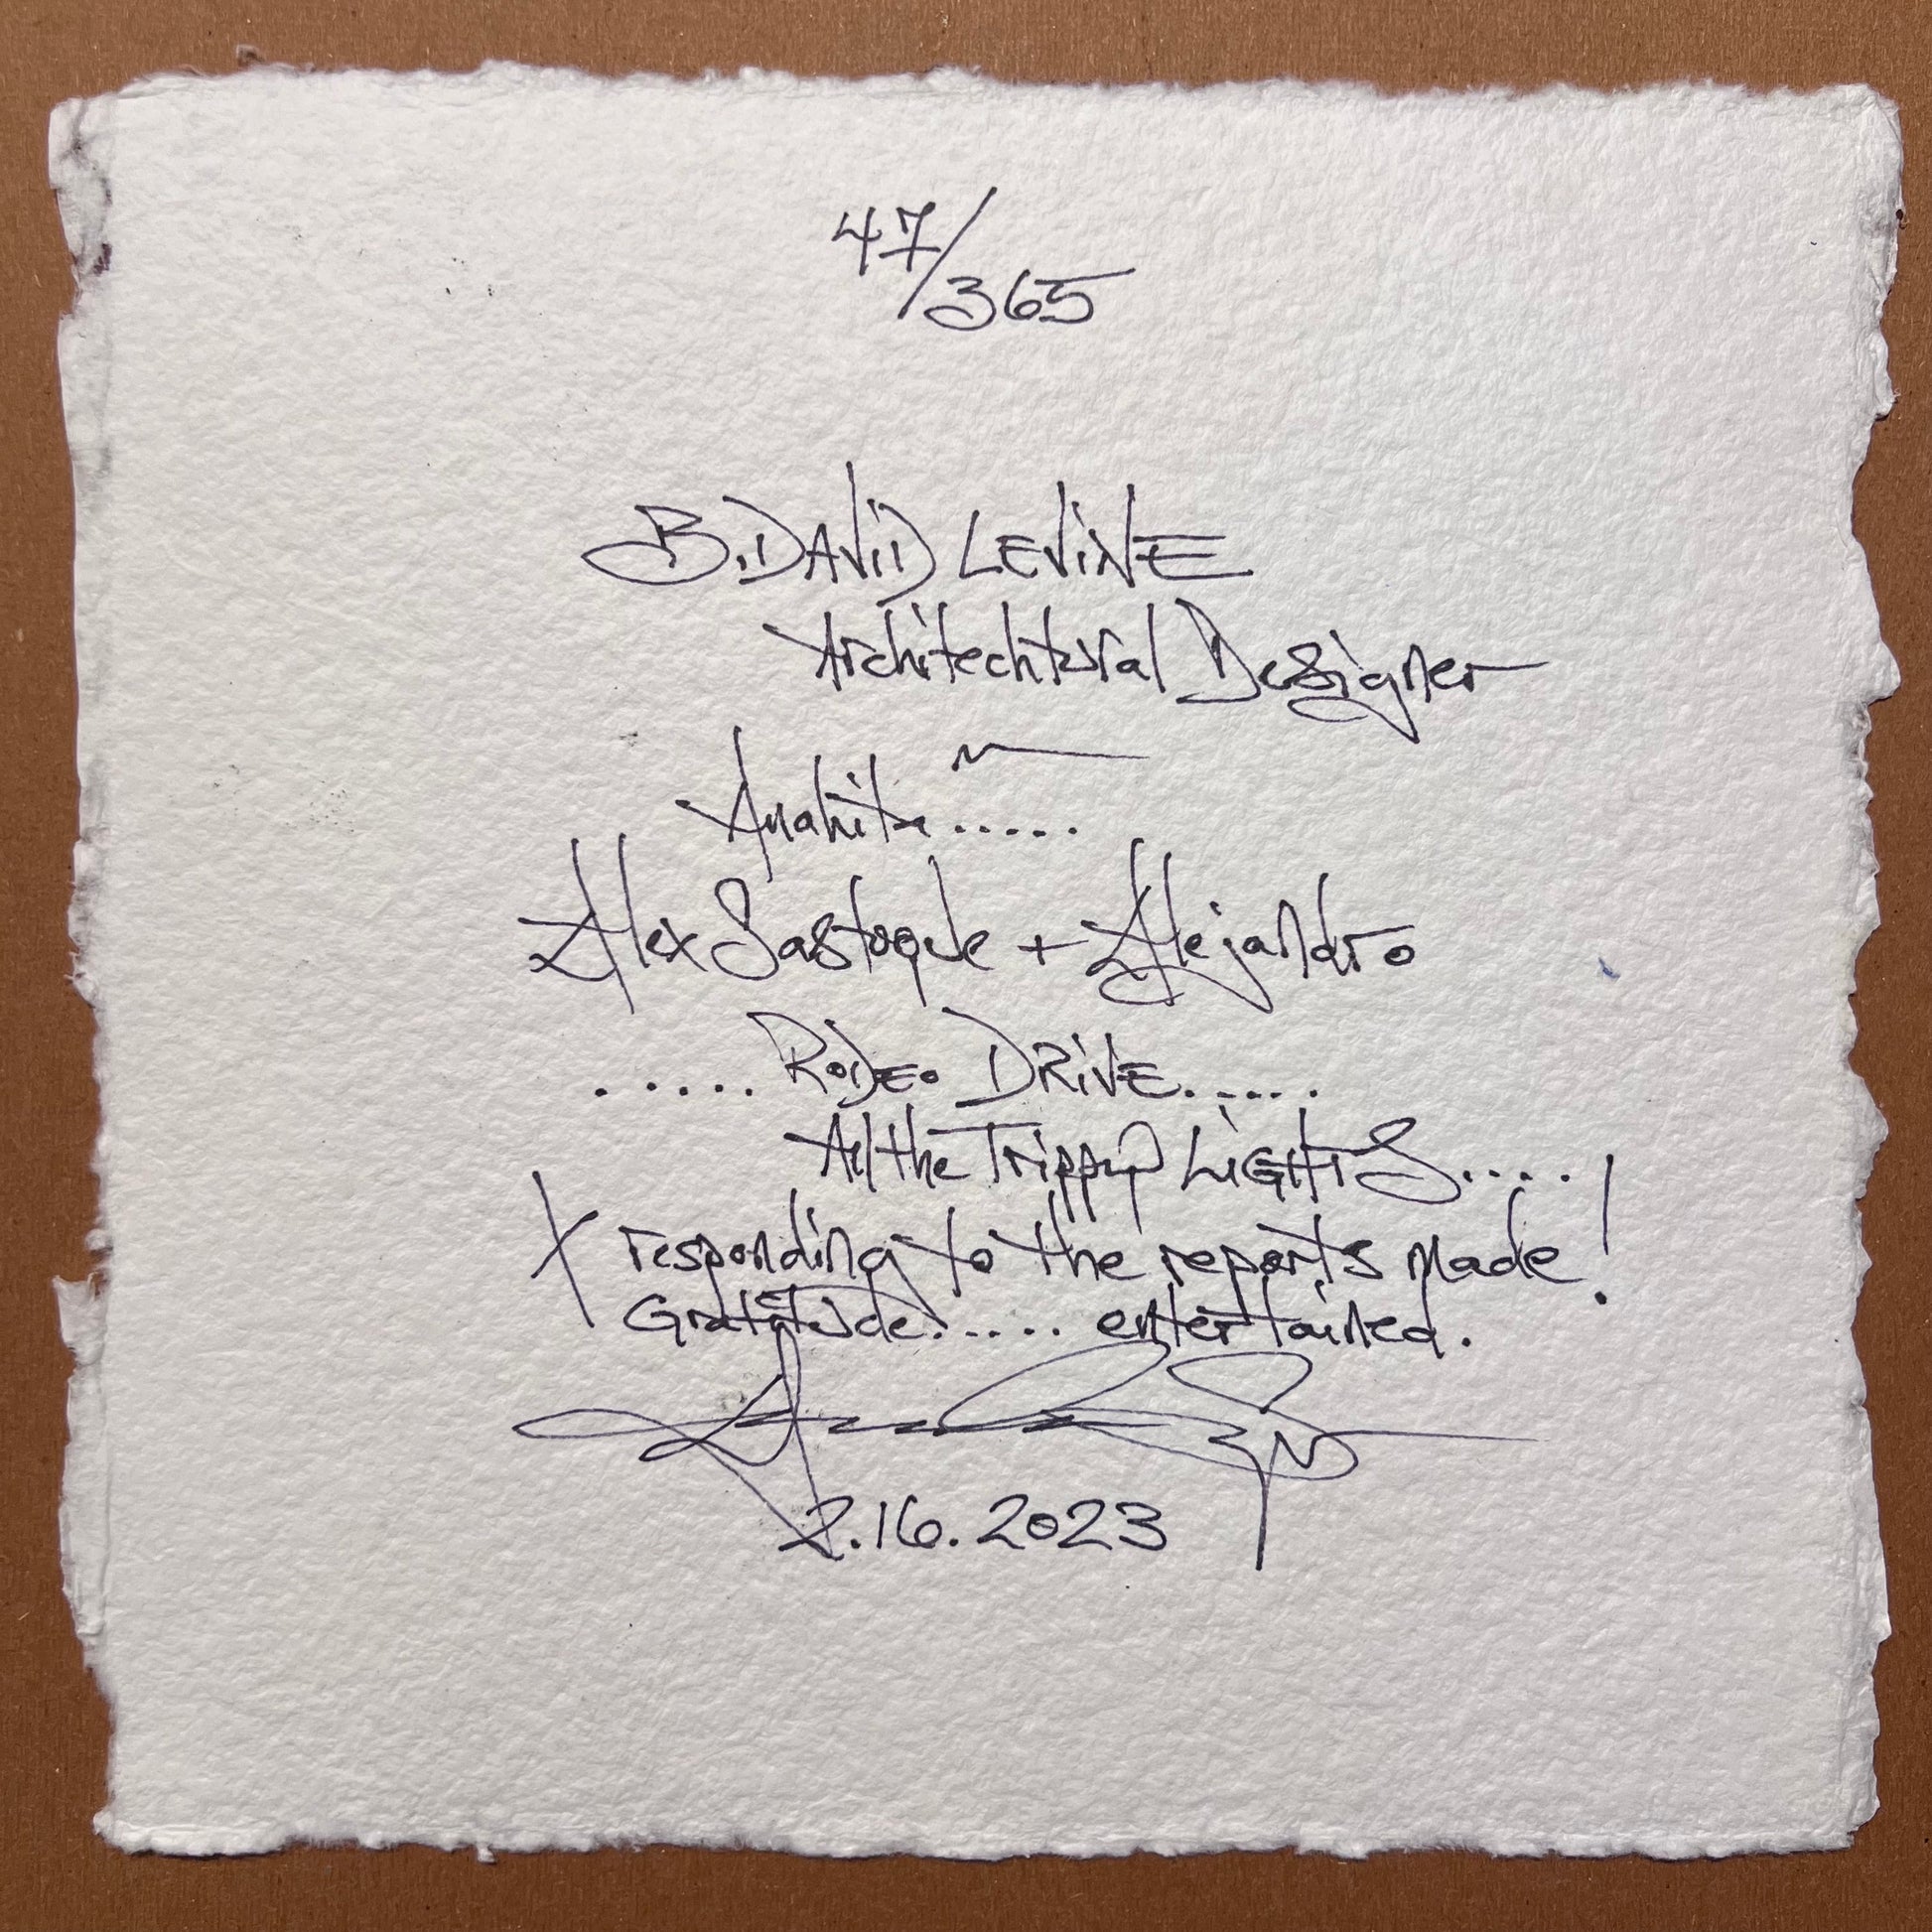 47/365
B. DAViD LEViNE
Architechtural Designer
Anahita.....
Alex Sastoque + Alejandro
...... RoDeo DRiVE......
All the Trippy LiGHTS.....
X responding to the reports made!
Gratitude...... entertained.
2.16.2023